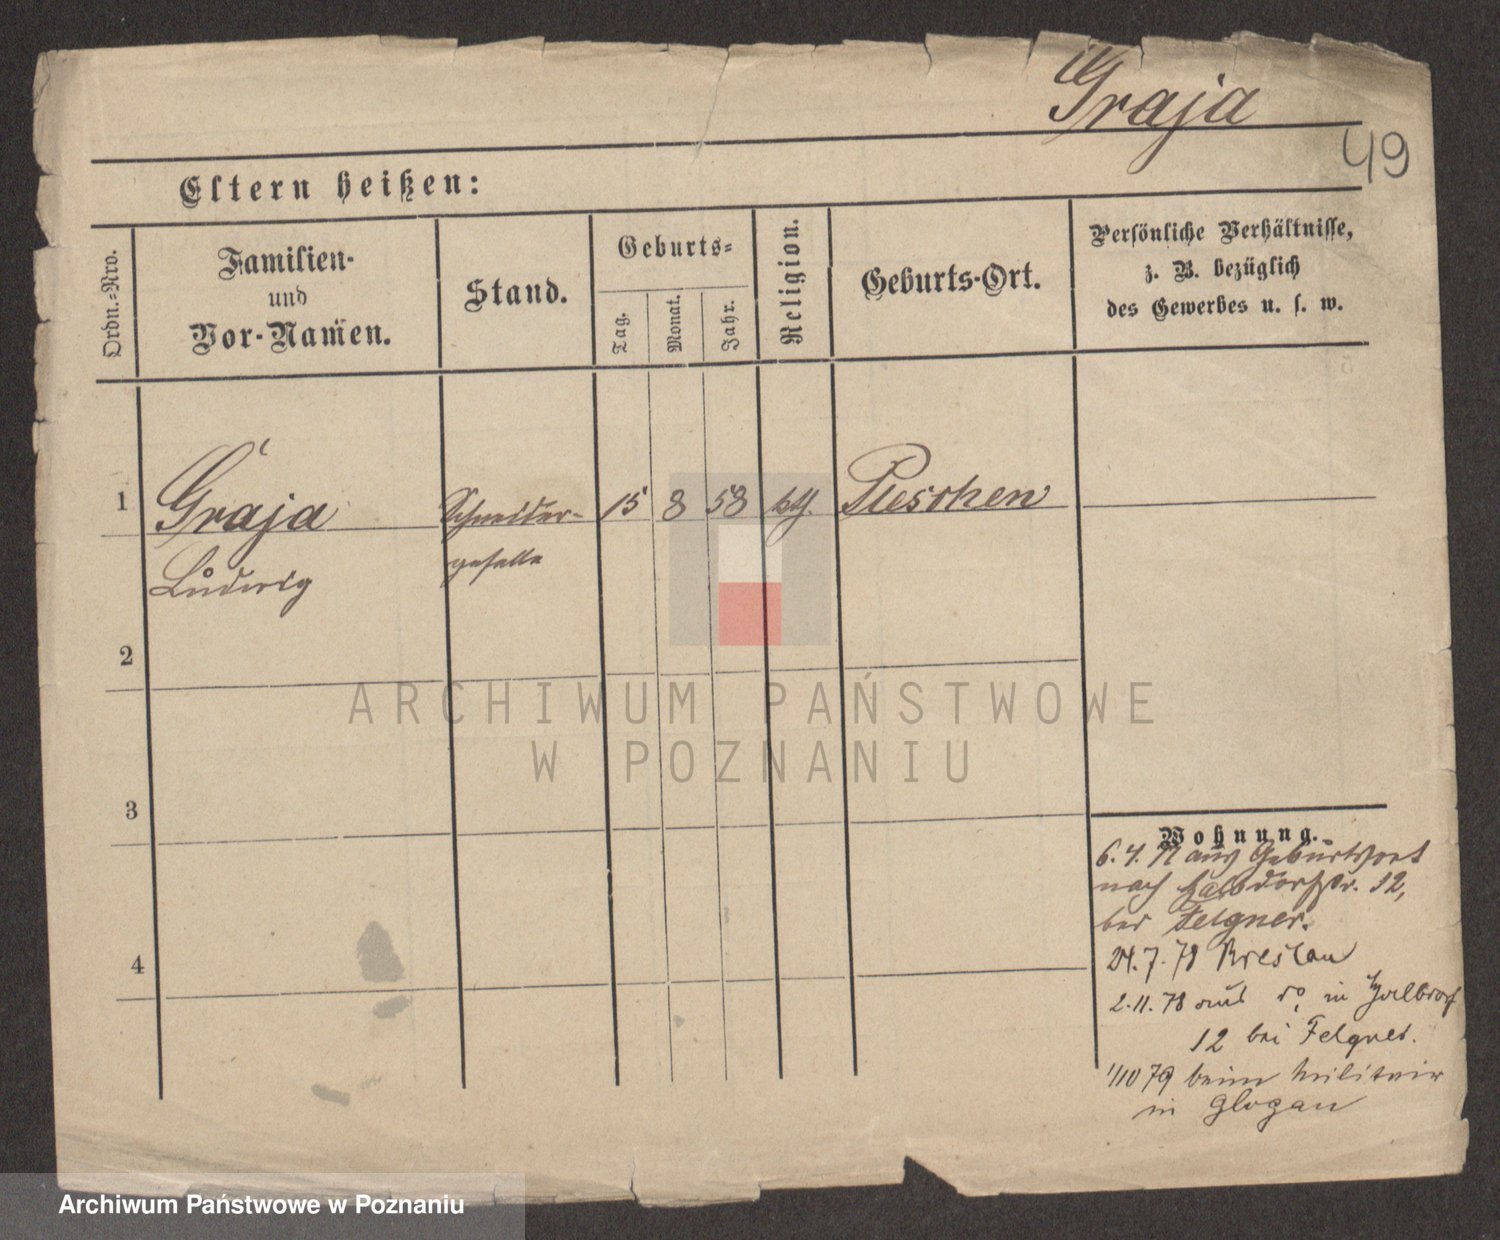 Graja
49
Eltern heißen:
Ordn.-Nro.
Familien-
und
Vor-Namen.
Stand.
Geburts-
Tag.
Monat.
Jahr.
Religion.
Geburts-Ort.
Persönliche Verhältnisse,
z. B. bezüglich
des Gewerbes u. s. w.
1
Graja
Schneider-
15
8
58
kth.
Pleschen
Ludwig
geselle
2
3
4
Wohnung.
6.4. aus Geburtsort
nach Halbdorfstr. 12,
bei Felgner.
24.7.78 Breslau
2.11.78 aus do, in Halbdorf
12 bei Felgner.
1/10 79 beim Militair
in Glogau
ARCHIWUM PAŃSTWOWE
W POZNANIU
Archiwum Państwowe w Poznaniu